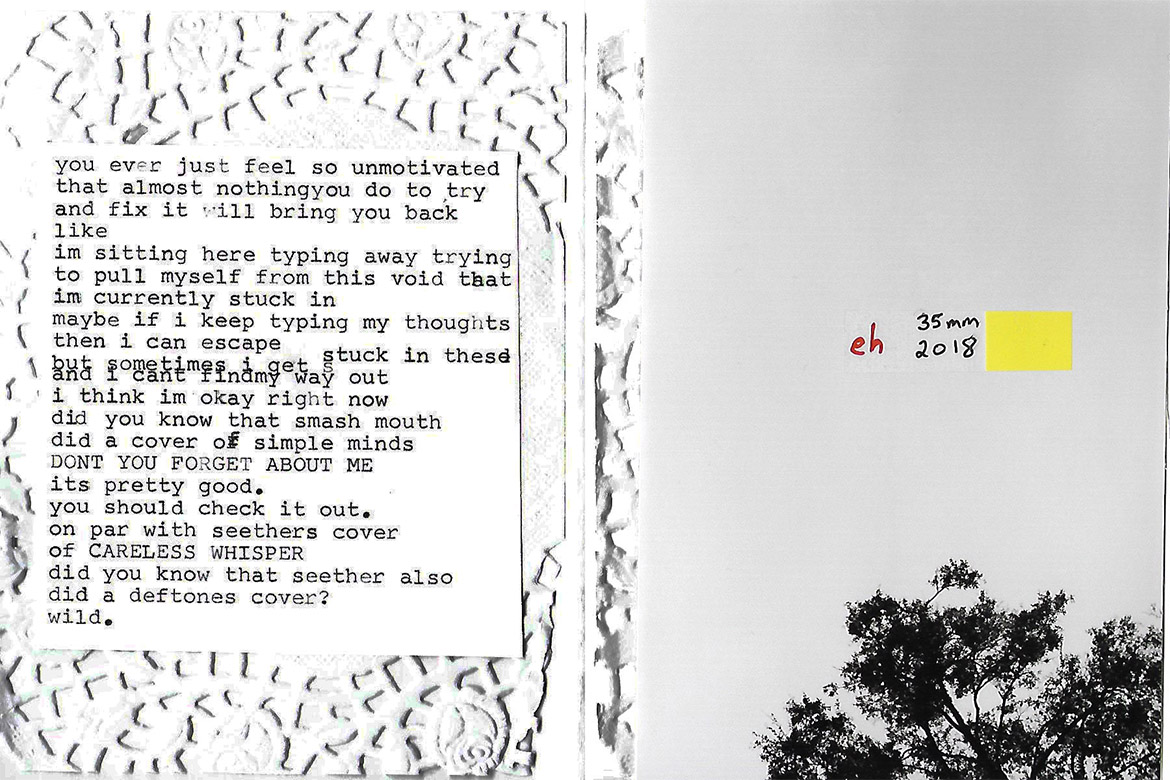 you ever just feel so unmotivated
that almost nothingyou do to try
and fix it will bring you back
like
im sitting here typing away trying
to pull myself from this void that
im currently stuck in
maybe if i keep typing my thoughts
then i can escape
but sometimes i get stuck in these
and i cant findmy way out
i think im okay right now
did you know that smash mouth
did a cover of simple minds
DONT YOU FORGET ABOUT ME
its pretty good.
you should check it out.
on par with seethers cover
of CARELESS WHISPER
did you know that seether also
did a deftones cover?
wild.
eh
35mm
2018